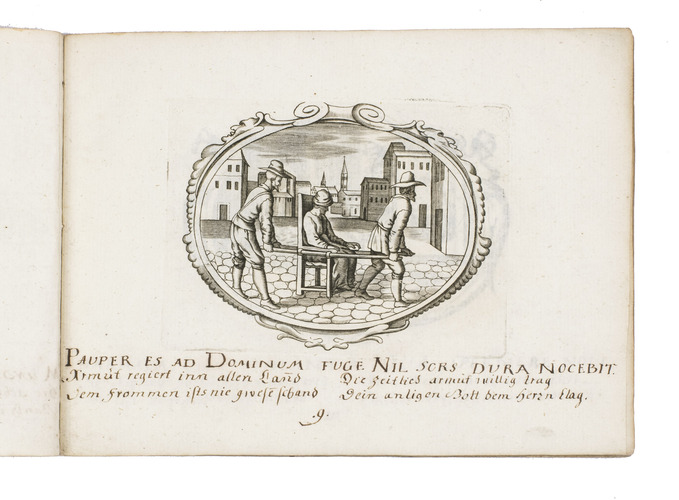 PAUPER ES AD DOMINUM FUGE NIL SORS DURA NOCEBIT.
Armůt regiert inn allen Lañd
Dem frommen ists nie gwese schand
Die zeitlich armut willig trag
Dein anligen Gott dem Herrn klag.
.9.